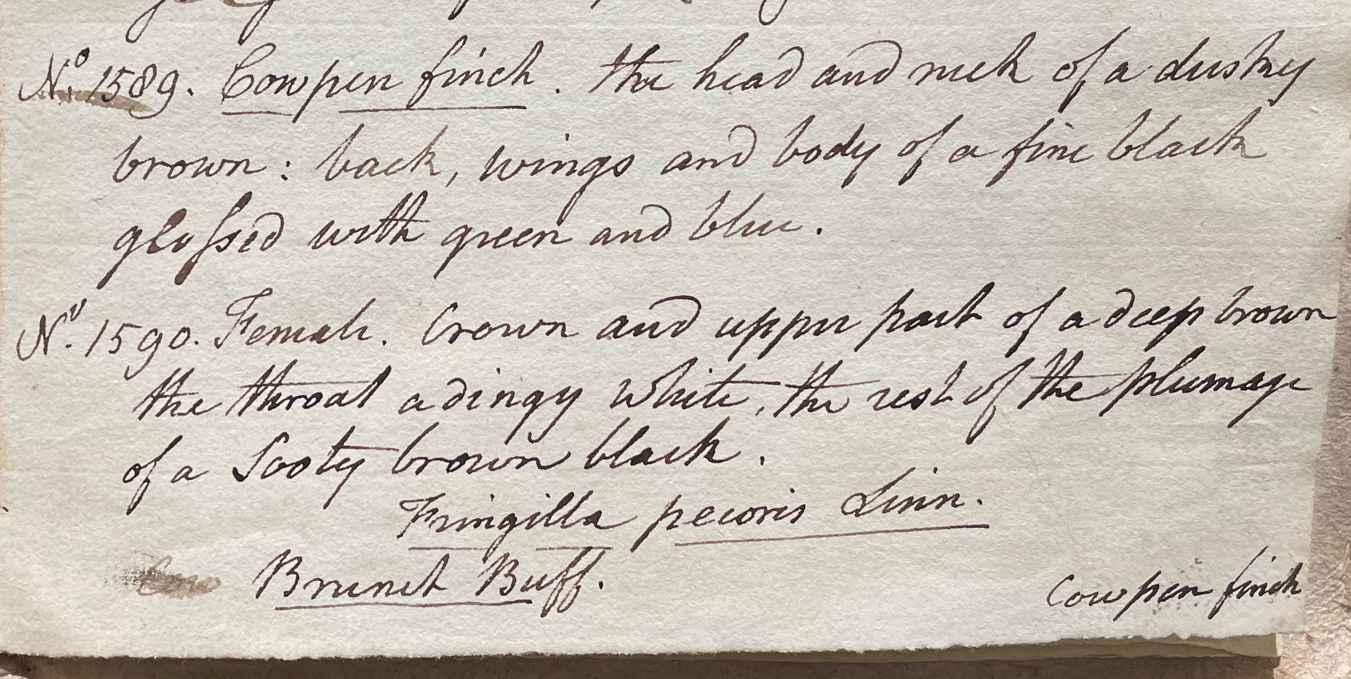 No. 1589. Cowpen finch. the head and neck of a duskey
brown: back, wings and body of a fine black
glossed with green and blue.
No. 1590. Female. Crown and upper part of a deep brown
the throat a dingy white, the rest of the plumage
of a Sooty brown black.
Fringilla pecoris Linn.
Brunet Buff.
Cowpen finch